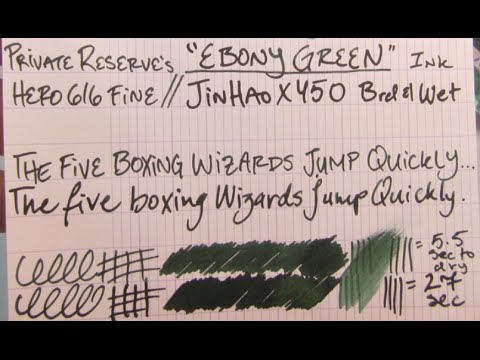 Private Reserve's "EBONY GREEN" Ink
Hero 616 Fine // JinHao X450 Broad Wet
The Five Boxing Wizards Jump Quickly...
The five boxing Wizards Jump Quickly.
= 5.5 sec to dry
= 27 sec